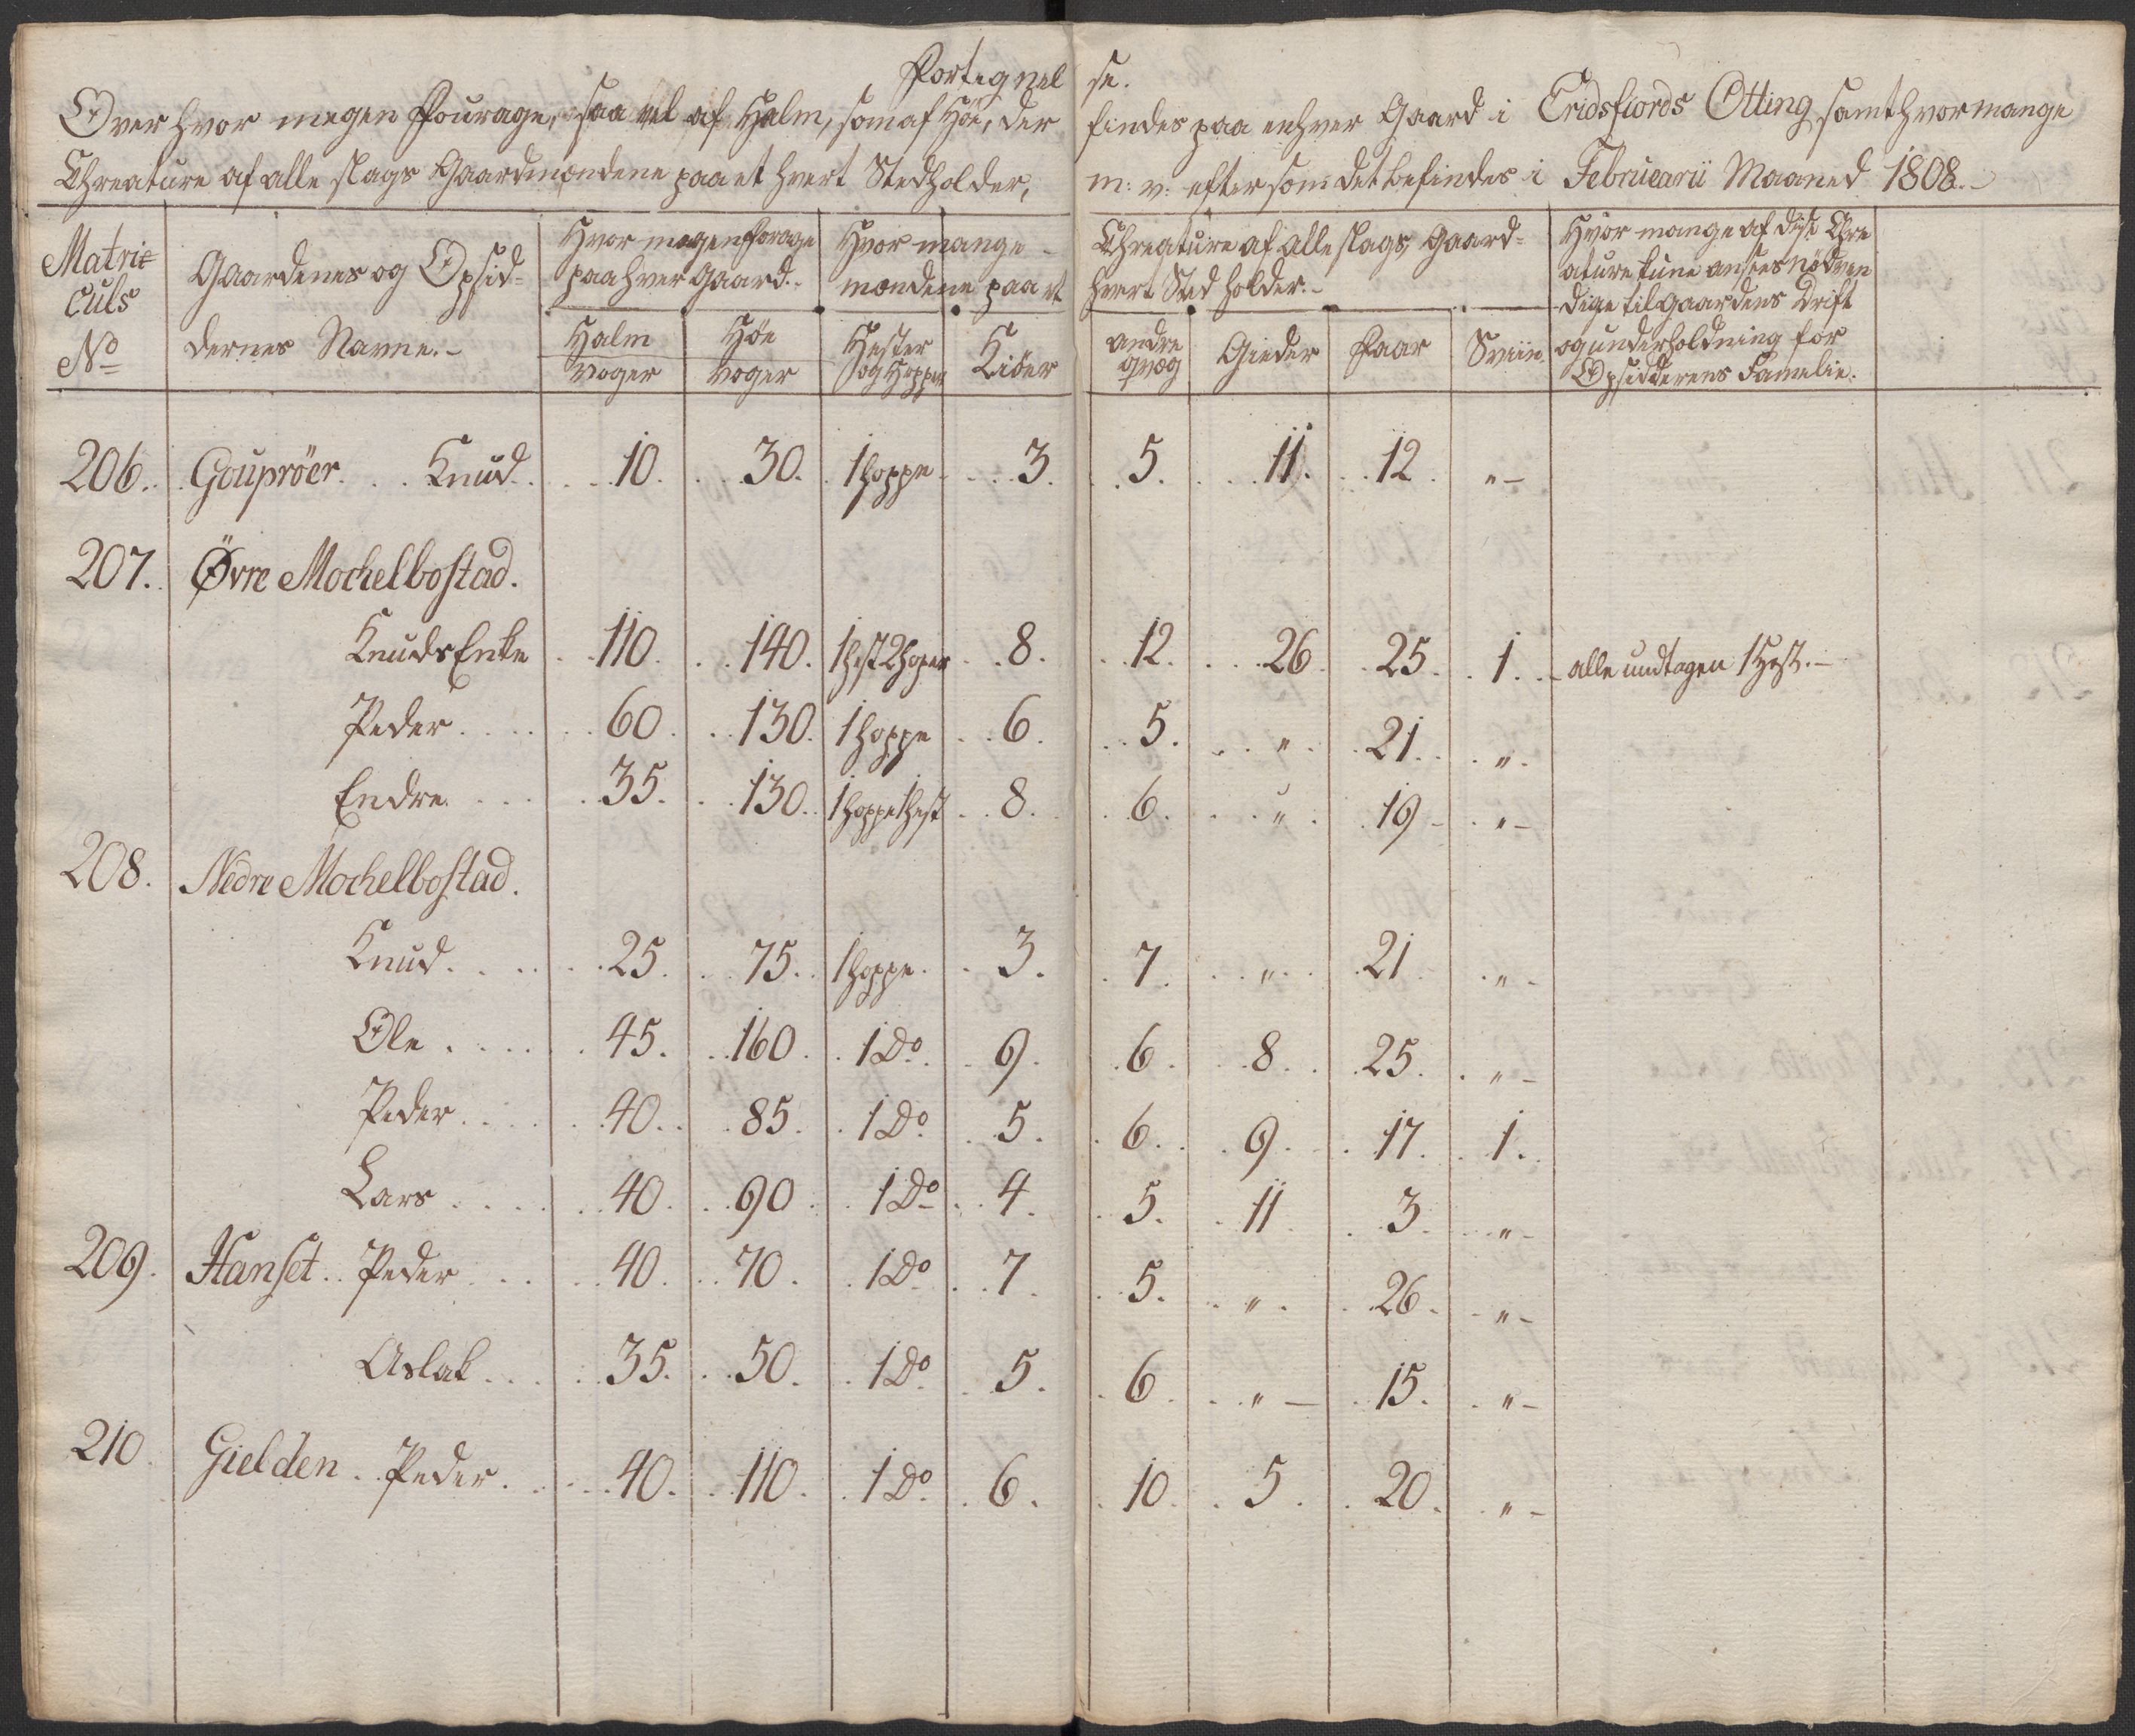 Fortegnelse.
Over hvor megen Fourage, saa vel af Halm, som af Höe, der findes paa enhver Gaard i Eridsfiords Otting, samt hvor mange
Chreature af alle slags Gaardmændene paa et hvert Sted holder, m: v: efter som det befindes i Februarii Maaned 1808.-
Matri=
Culs
No
Gaardenes og Opsid=
dernes Navne.-
Hvor megen Forage
paa hver Gaard.-
Halm
Voger
Höe
Voger
Hvor mange Chreature af alle slags Gaard=
mændene paa et hvert Sted holder.-
Hester
og Hopper
Kiöer
andre
qvæg
Gieder
Faar
Sviin
Hvor mange af disse Chre
ature kune ansees nödven
dige til Gaardens Drift
og underholdning for
Opsidderens Familie.
206. Goupröer. Knud. 10. 30. 1 hoppe. 3. 5. 11. 12. "-
207. Övre Mochelbostad.
Knuds Enke 110. 140. 1 hest 2 hoper 8. 12. 26. 25. 1. alle undtagen 1 Hest.-
Peder 60. 130. 1 hoppe 6. 5. ". 21. ".
Endre. 35. 130. 1 hoppe 1 hest 8. 6. ". 19 - "-
208. Nedre Mochelbostad.
Knud. 25. 75. 1 hoppe. 3. 7. ". 21 "-
Ole 45. 160. 1 Do. 9. 6. 8. 25. "-
Peder. 40. 85. 1 Do. 5. 6. 9. 17. 1.
Lars 40. 90. 1 Do 4. 5. 11. 3. "-
209. Hanset. Peder 40. 70. 1 Do 7. 5. ". 26. "-
Aslak 35. 50. 1 Do. 5. 6. "- 15. "-
210. Gielden. Peder. 40. 110. 1 Do. 6. 10. 5. 20. "-